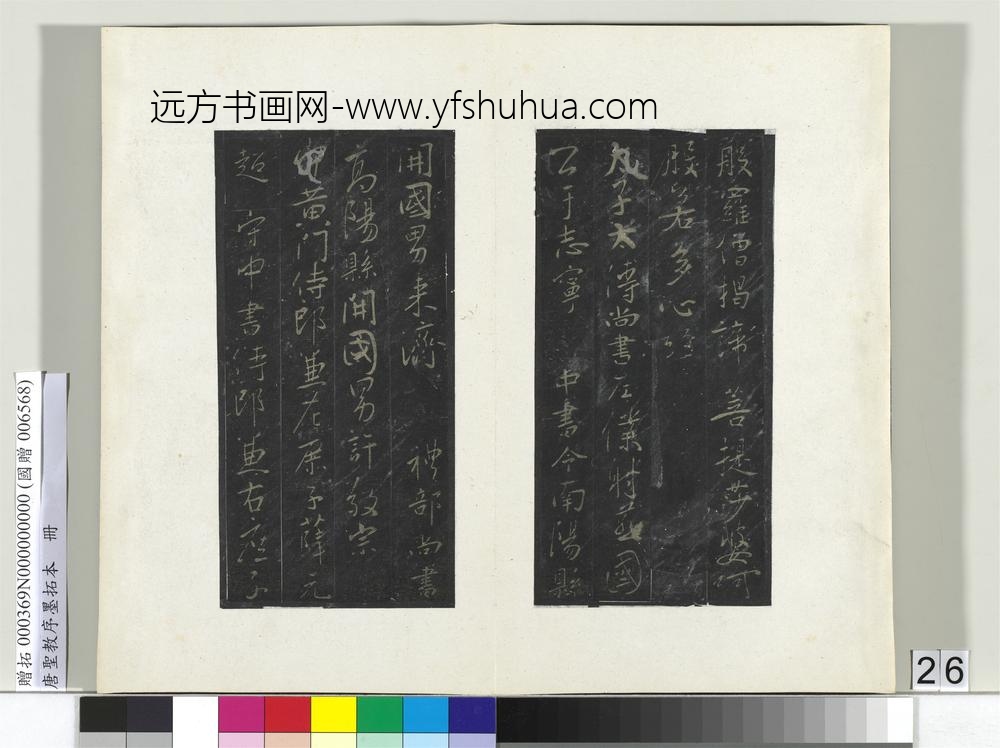 远方书画网-www.yfshuhua.com
般羅僧揭諦 菩提莎婆呵
般若多心經
子太傅尚書左僕射燕國
公于志寧 中書令南陽縣
開國男来濟 禮部尚書
高陽縣開國男許敬宗
黃門侍郎兼左庶子薛元
超 守中書侍郎兼右庶子
贈拓 000369N000000000 (國贈 006568)
唐聖教序墨拓本 冊
26